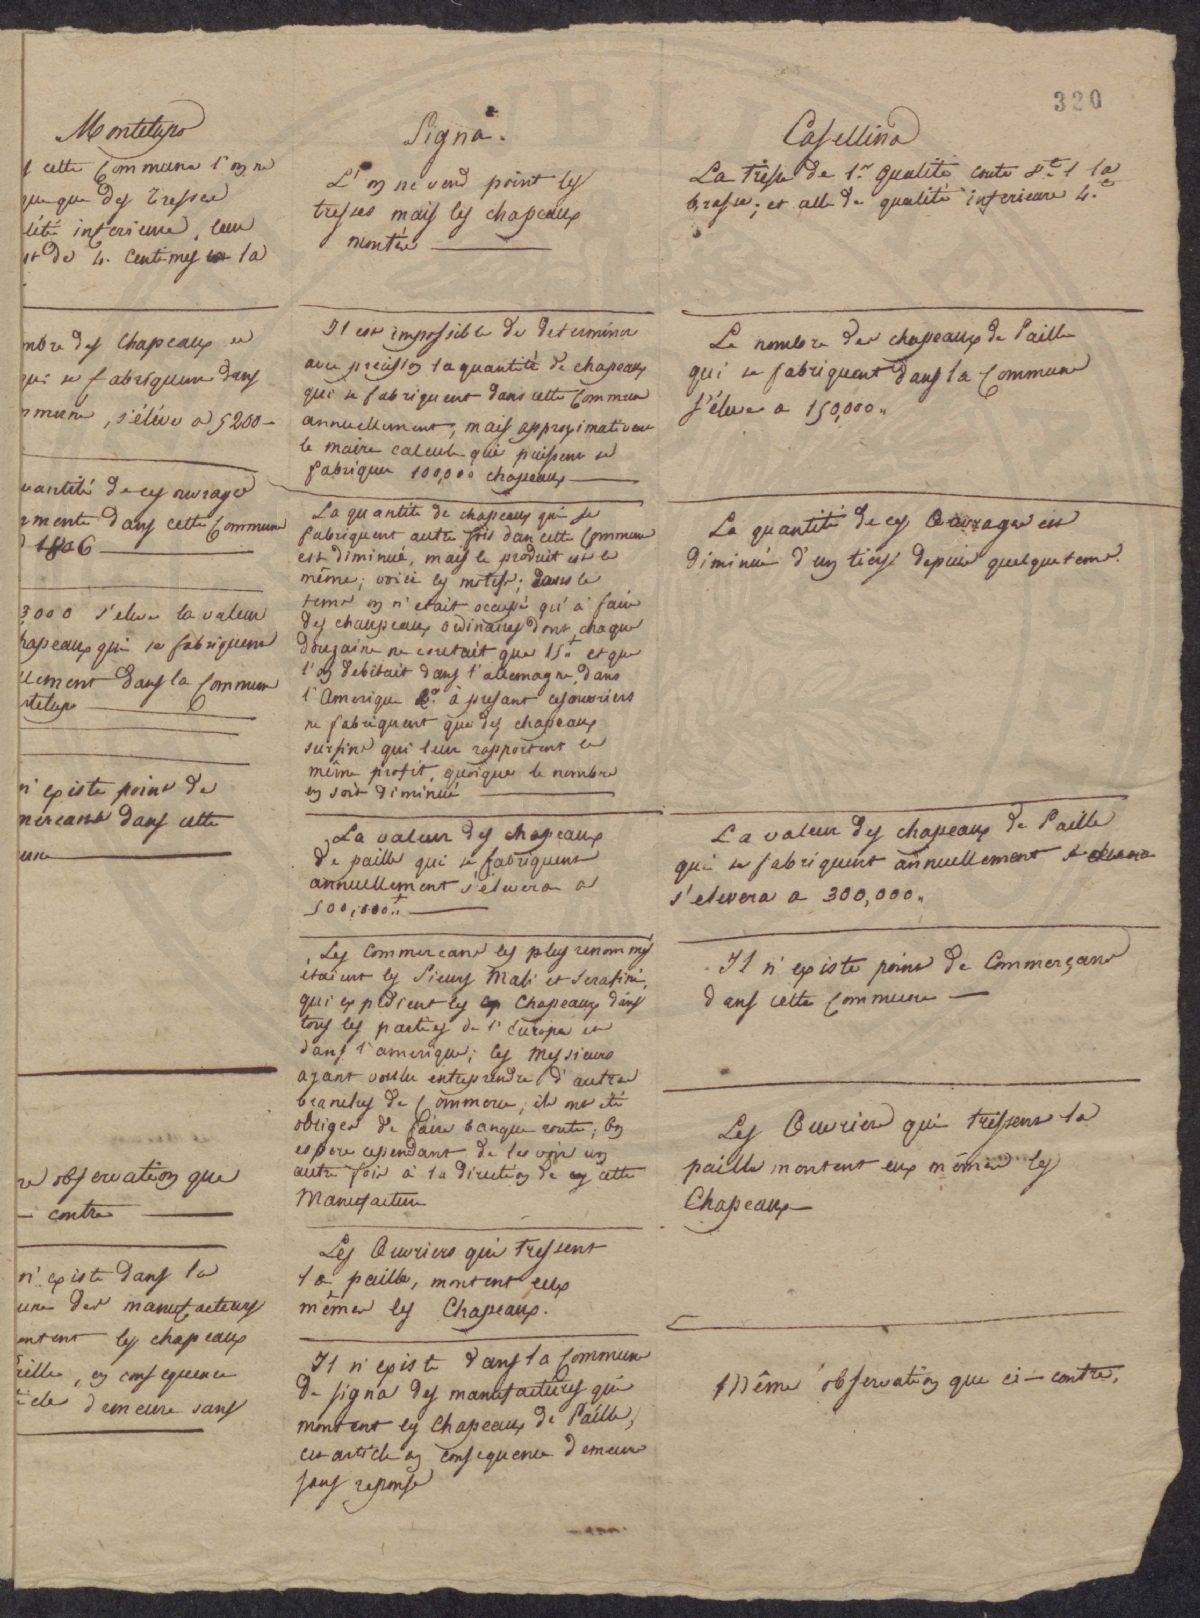 320
Montelupo
cette Commune l'on ne
que que des Tresses
lité inferieure, leur
st de 4. Centimes la
mbre des Chapeaux
qui se fabriquent dans
mmune, s'éléve a 5200 —
uantité de ces ouvrages
gmente dans cette Commune
1806
3,000 s'eleve la valeur
hapeaux qui se fabriquent
llement dans la Commune
ntelupo
n'existe point de
merçants dans cette
une
re observation que
— contre —
n'existe dans la
une des manufacteurs
ontent les chapeaux
aille, en consequence
ticle demeure sans
Signa.
L'on ne vend point les
tresses mais les chapeaux
montés —
Il est impossible de determiner
avec précision la quantité de chapeaux
qui se fabriquent dans cette Commune
annuellement, mais approximativement
le maire calcule qui puissent se
fabriquer 100,000 chapeaux —
La quantité de chapeaux qui se
fabriquent autre fois dans cette Commune
est diminué, mais le produit est le
même; voici les motifs; dans le
tems on n'etait occupé qu'à faire
des chaupeaux ordinaires dont chaque
Douzaine ne coutait que 15.tt et que
l'on debitait dans l'allemagne, dans
l'Amerique &.a à present ces ouvriers
ne fabriquent que des chapeaux
surfins qui leur rapportent le
même profit, quoique le nombre
en soit diminué —
La valeur des chapeaux
de paille qui se fabriquent
annuellement s'élevera a
500,000.tt —
Les Commercans les plus renommés
étaient les Sieurs Mali et Serafini,
qui expedient les Chapeaux dans
tous les parties de l'Europe et
dans l'amerique; les Messieurs
ayant voulu entreprendre d'autres
branches de Commerce, ils ont été
obliges de faire banque route; on
espere cependant de les voir un
autre fois à la direction de cette
Manufacture
Les Ouvriers qui tressent
la paille, montent eux
mêmes les Chapeaux.
Il n'existe dans la Commune
de Signa des manufactures qui
montent les Chapeaux de Paille,
cet article en consequence demeure
sans reponse
Casellina
La Tresse de 1.re Qualité coute 8.c 1 la
brasse; et celle de qualité inferieure 4.c
Le nombre des chapeaux de Paille
qui se fabriquent dans la Commune
s'éleve a 150,000.,,
La quantité de ces Ouvrages est
diminué d'un tiers depuis quelque tems.
La valeur des chapeaux de Paille
qui se fabriquent annuellement
s'elevera a 300,000.,,
Il n'existe point de Commerçans
dans cette Commune —
Les Ouvriers qui tressent la
paille montent eux mêmes les
Chapeaux —
Même observation que ci-contre,